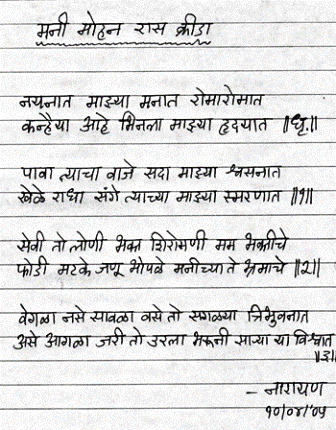 मनी मोहन रास क्रीडा
नयनात माझ्या मनात रोमारोमात
कन्हैया आहे भिनला माझ्या हृदयात ॥धृ.॥
पावा त्याचा वाजे सदा माझ्या श्वसनात
खेळे राधा संगे त्याच्या माझ्या स्मरणात ॥१॥
सेवी तो लोणी भक्त शिरोमणी मम भक्तीचे
फोडी मटके जणू भोपळे मनीच्या ते भ्रमाचे ॥२॥
वेगळा नसे सावळा वसे तो सगळ्या त्रिभुवनात
असे आगळा जरी तो उरला भरूनी साऱ्या या विश्वात
॥३॥
- नारायण
१०/०४/'०५